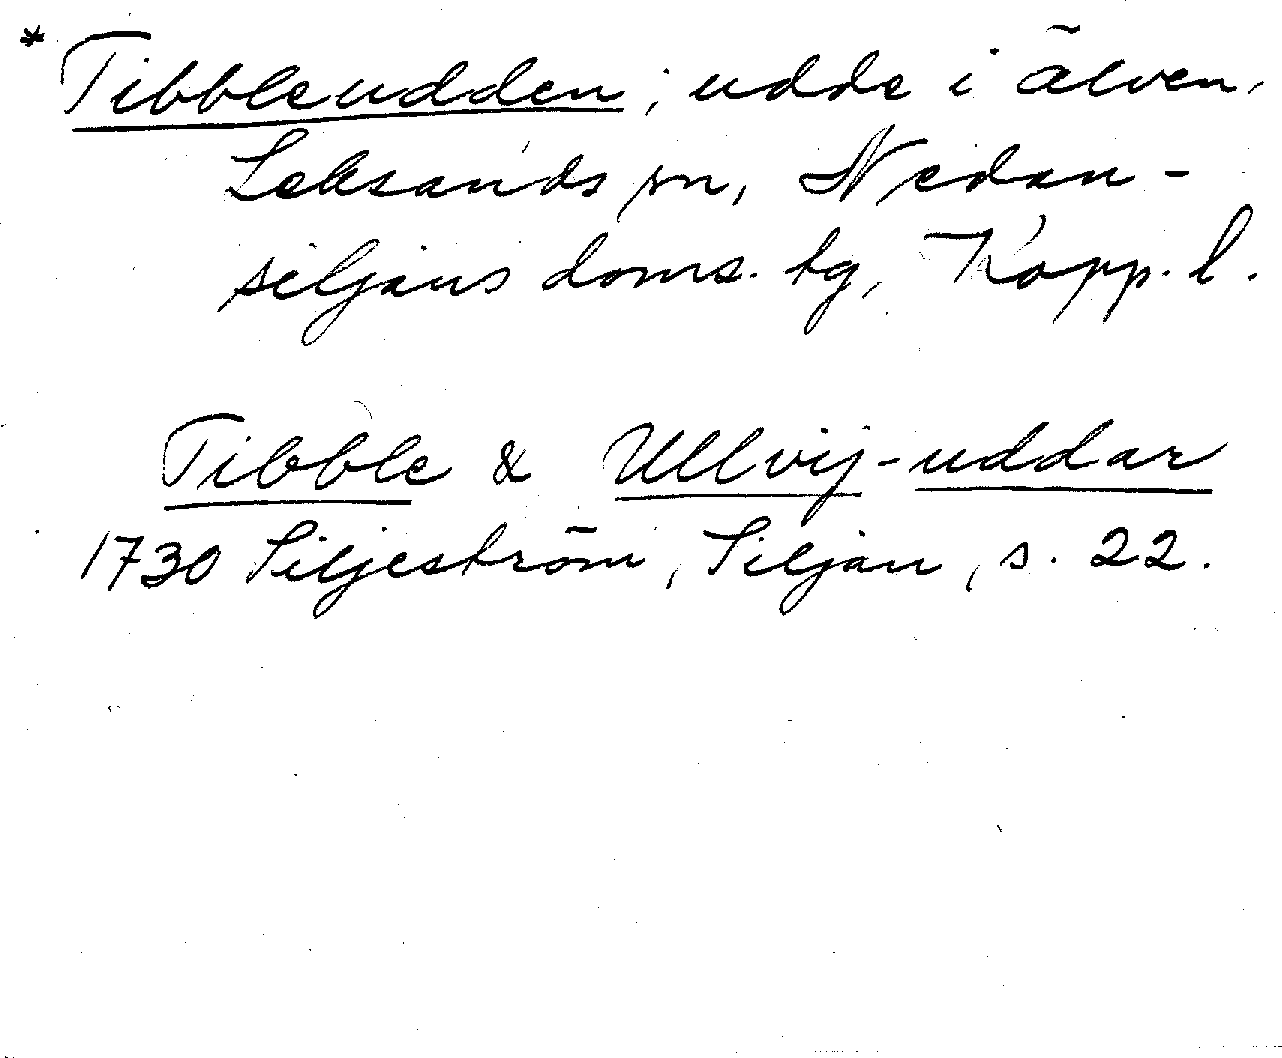 * Tibbleudden, udde i älven,
Leksands sn, Nedan-
siljans doms. tg, Kopp. l.
Tibble & Ullvij-uddar
1730 Siljeström, Siljan, s. 22.